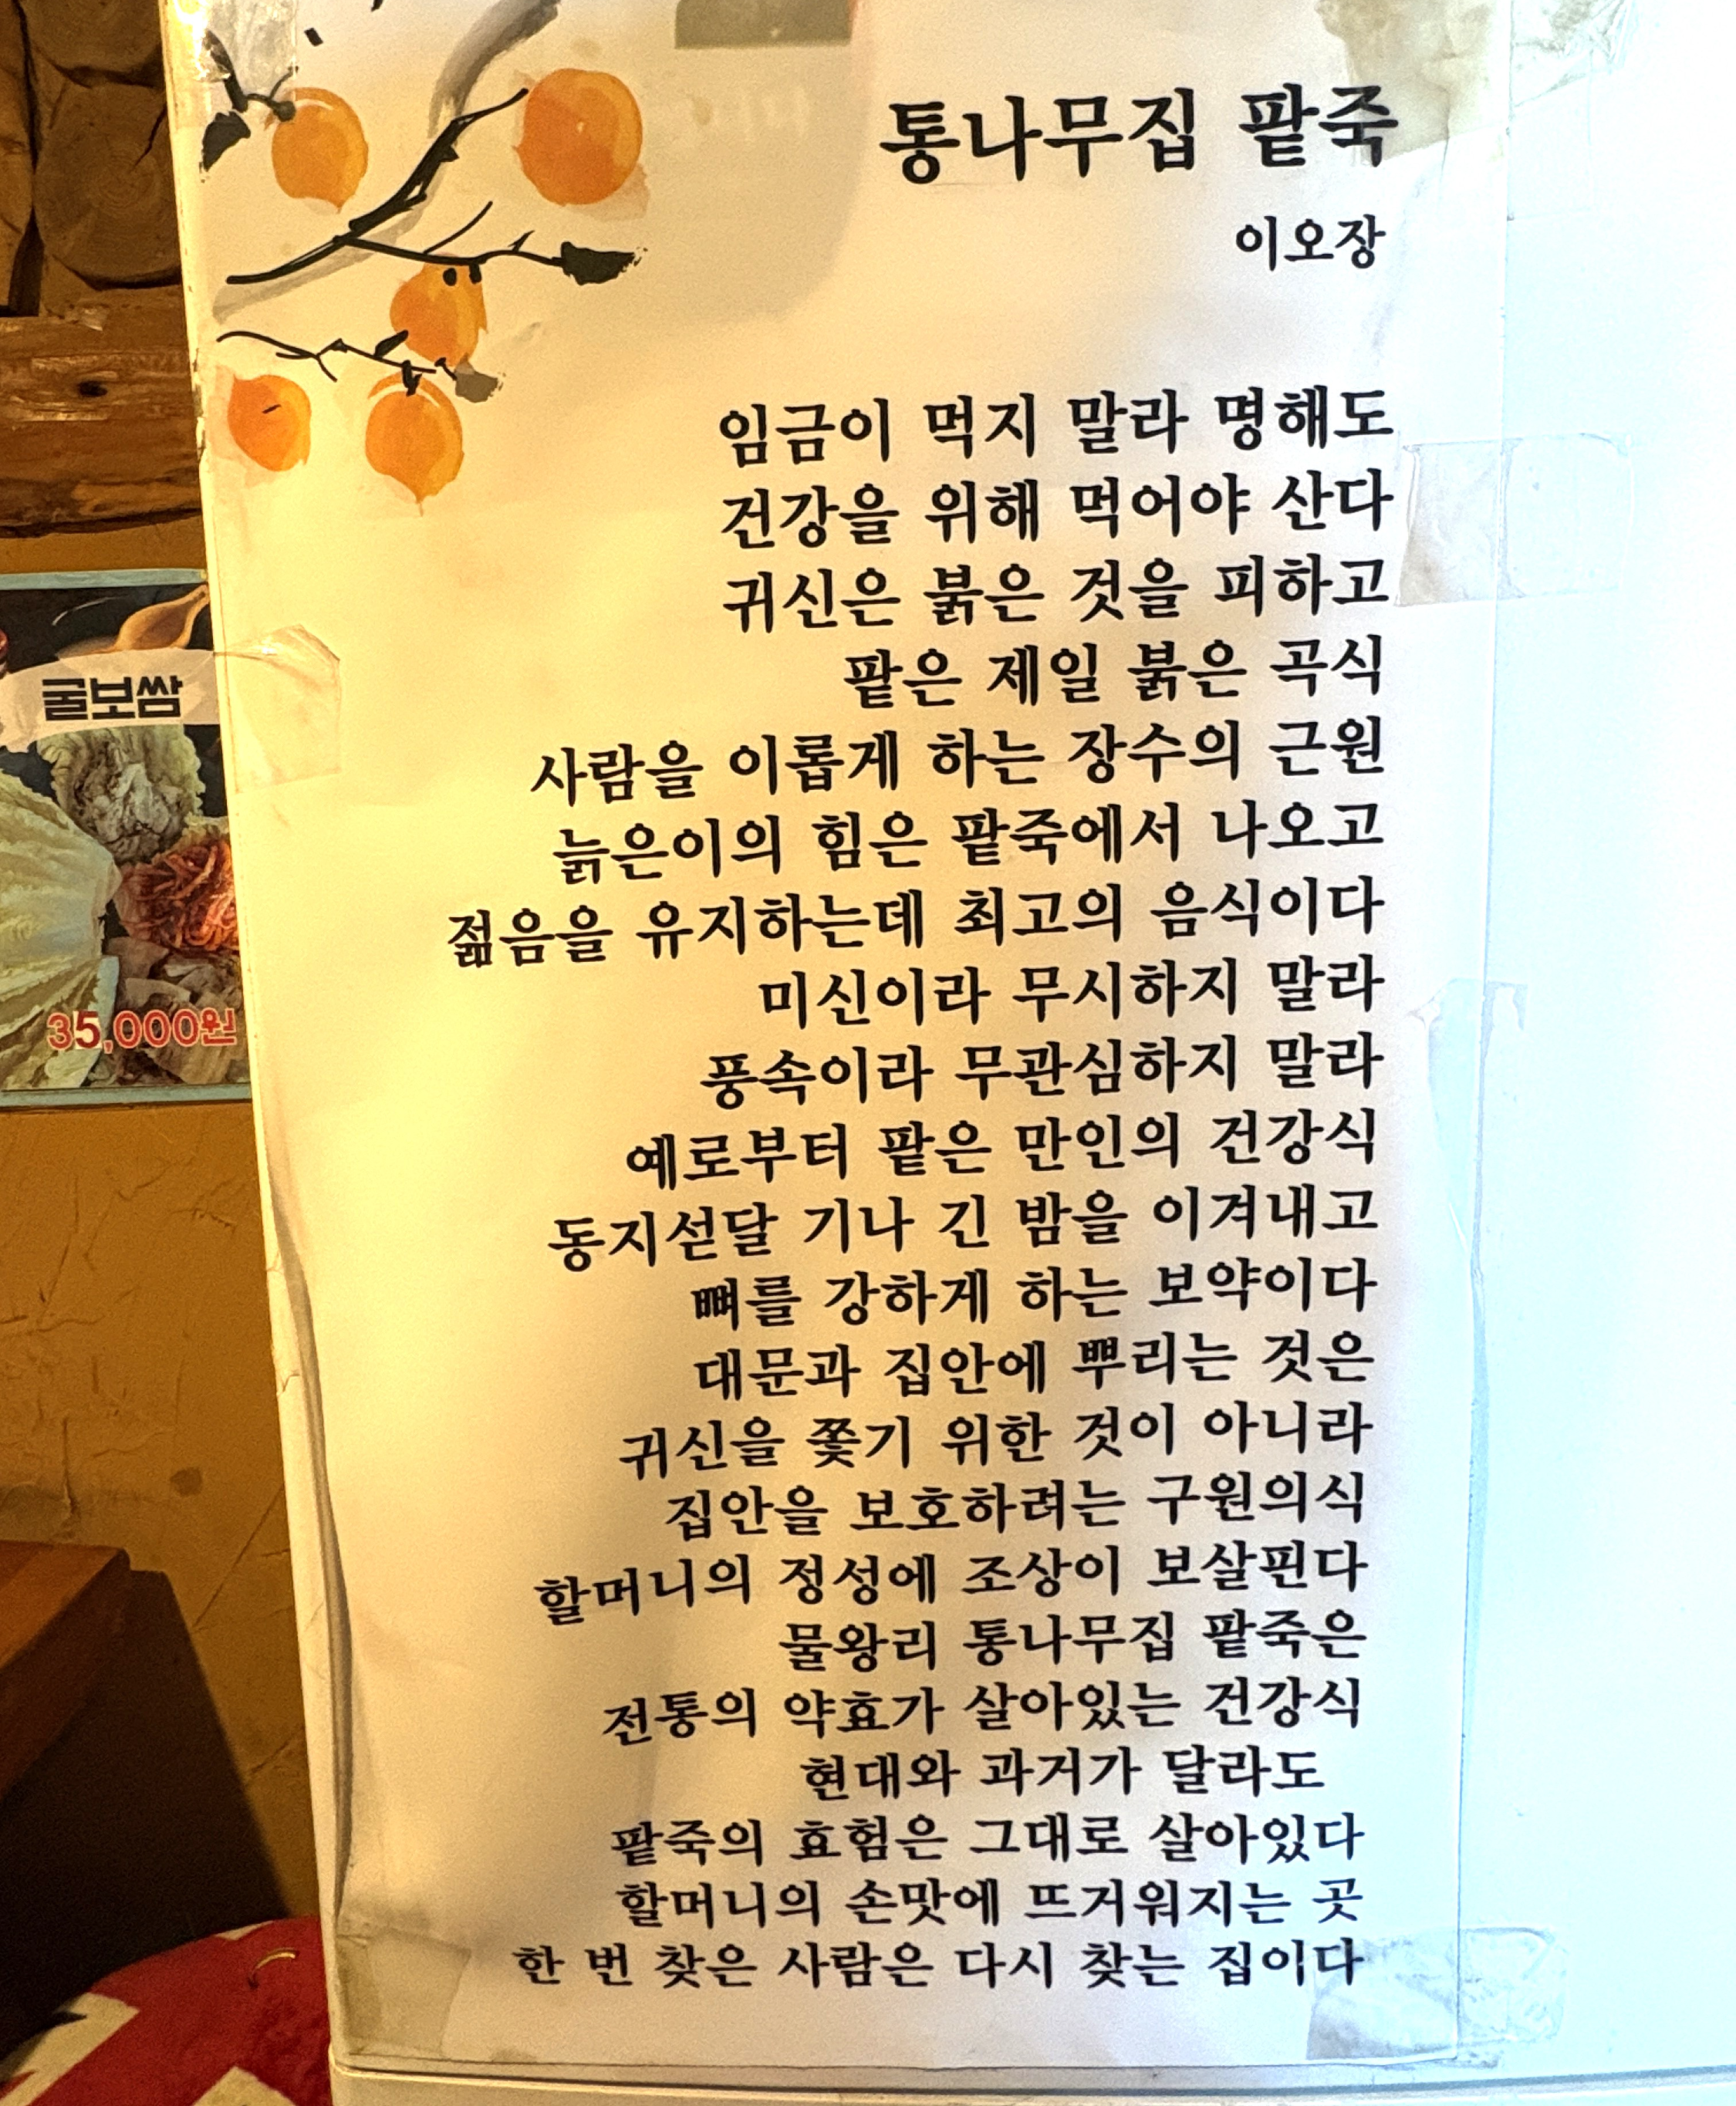 통나무집 팥죽
이오장
임금이 먹지 말라 명해도
건강을 위해 먹어야 산다
귀신은 붉은 것을 피하고
팥은 제일 붉은 곡식
사람을 이롭게 하는 장수의 근원
늙은이의 힘은 팥죽에서 나오고
젊음을 유지하는데 최고의 음식이다
미신이라 무시하지 말라
풍속이라 무관심하지 말라
예로부터 팥은 만인의 건강식
동지섣달 기나 긴 밤을 이겨내고
뼈를 강하게 하는 보약이다
대문과 집안에 뿌리는 것은
귀신을 쫓기 위한 것이 아니라
집안을 보호하려는 구원의식
할머니의 정성에 조상이 보살핀다
물왕리 통나무집 팥죽은
전통의 약효가 살아있는 건강식
현대와 과거가 달라도
팥죽의 효험은 그대로 살아있다
할머니의 손맛에 뜨거워지는 곳
한 번 찾은 사람은 다시 찾는 집이다
굴보쌈
35,000원